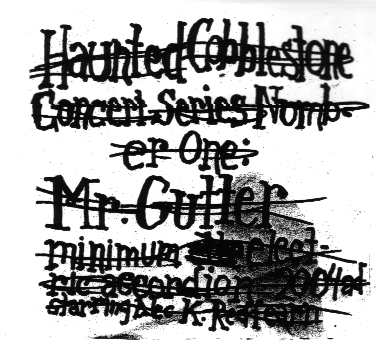 Haunted Cobblestone
Concert Series Numb-
er One:
Mr. Gutler
minimum elect-
ric accordion 2004 at
starring K. Redfearn